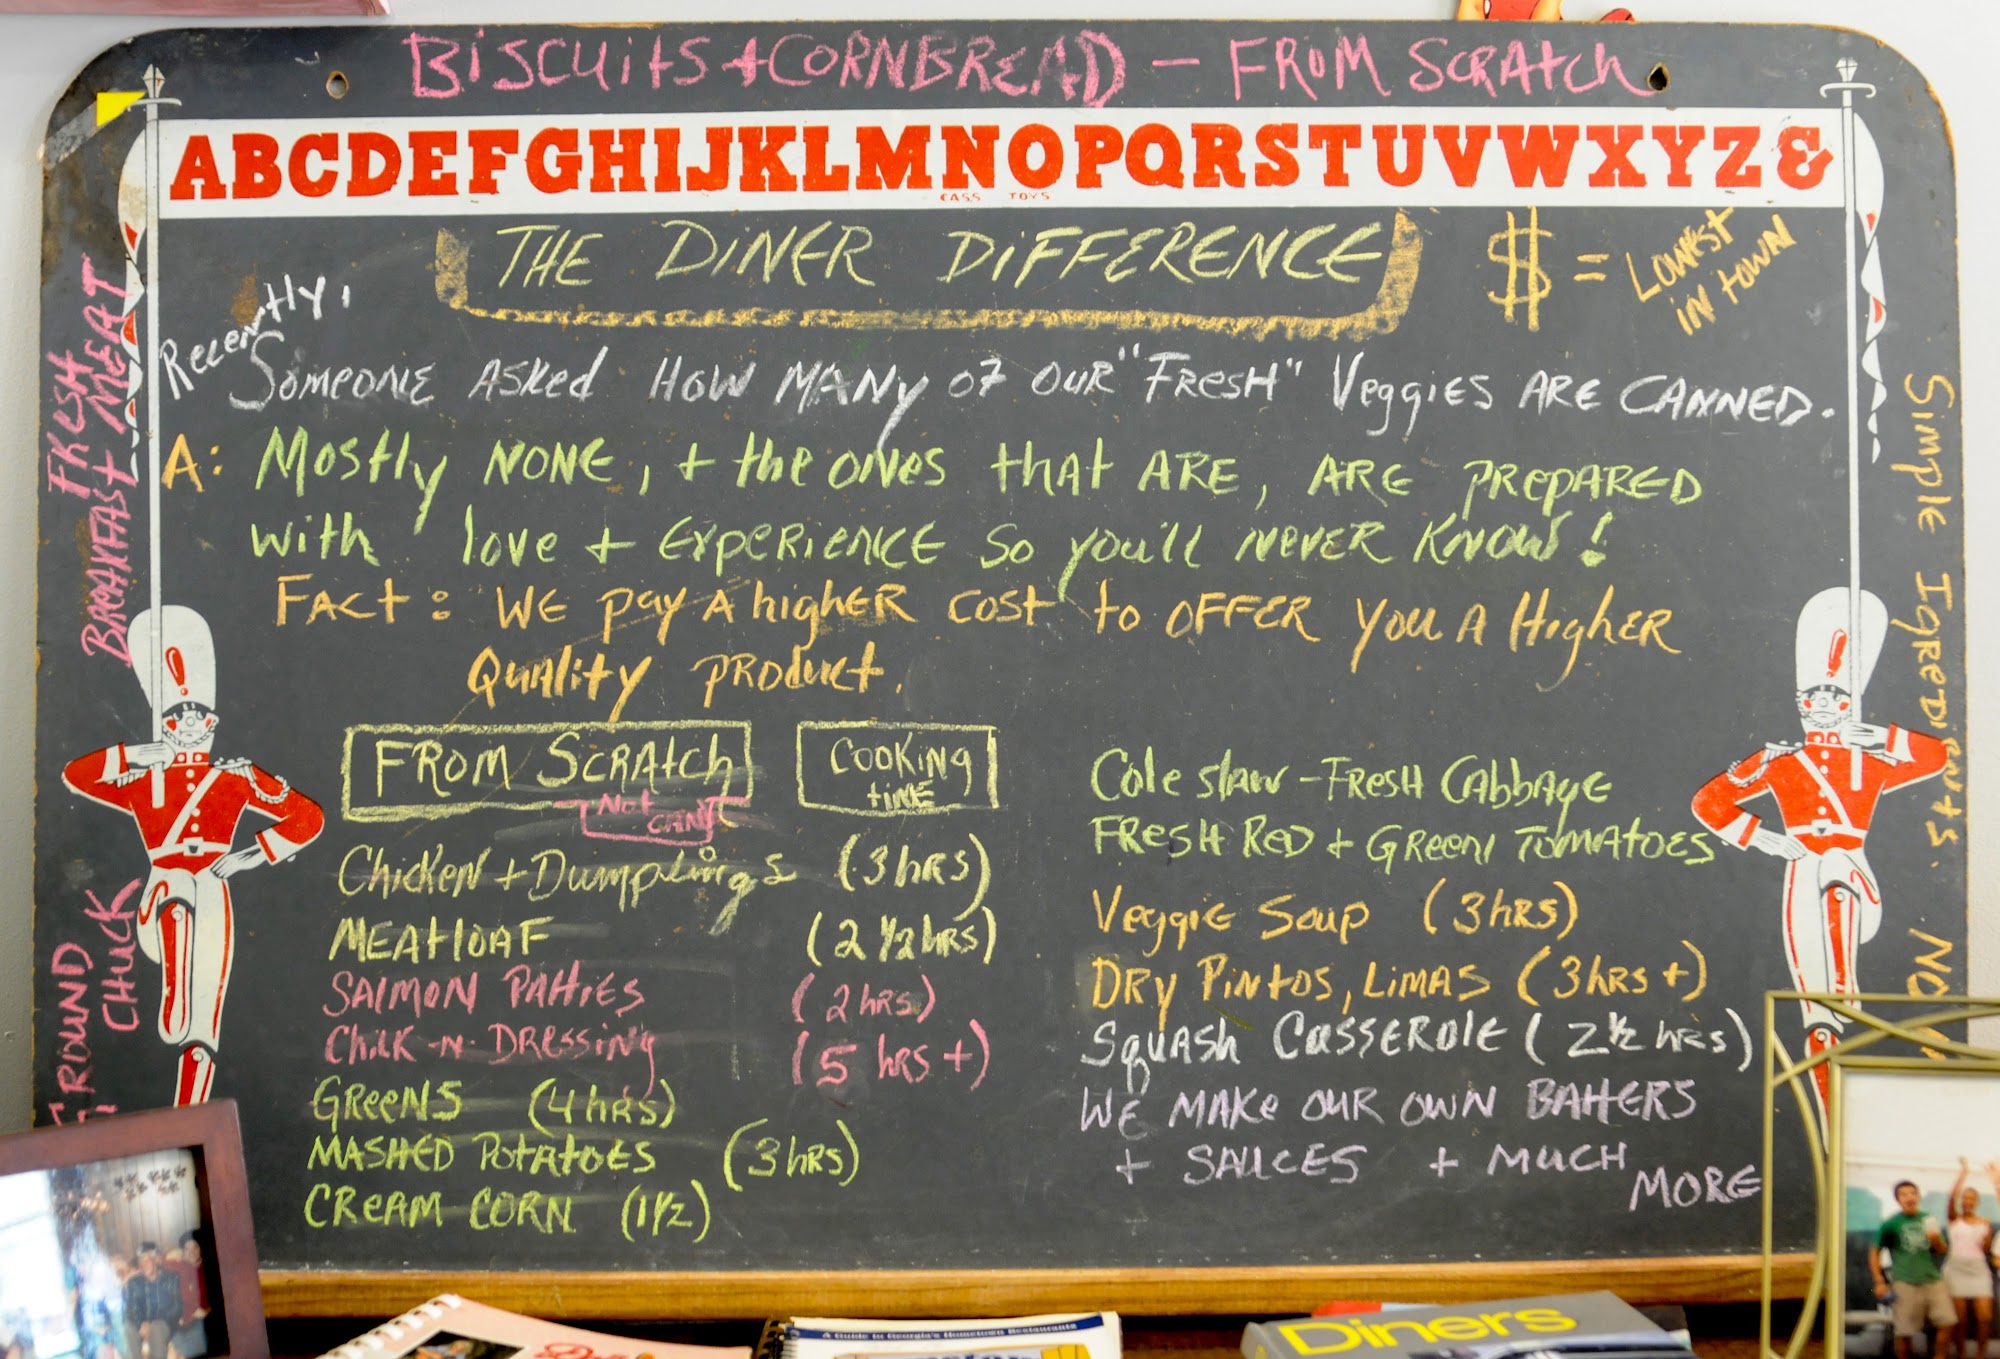 BiSCUitS + CORNBREAD — FROM SCRAtch
ABCDEFGHIJKLMNOPQRSTUVWXYZ&
CASS TOYS
THE DINER DiFFERENCE
$ = LOWEST
IN TOWN
Recently,
SOMEONE ASKed HOW MANy OF OUR "FResH" Veggies ARE CANNED.
A: Mostly NONE, + the ONes that ARE, ARE PRepARED
with love + ExpeRiENCE so you'll NEVER KNOW!
FAct: WE pay A higHER cost to OFFER you A HigHER
QuAlity pRoduct.
FROM ScRAtch
Not
CANS
COOKING
tiME
Chicken + Dumplings (3 hRs)
MEAtloAF (2 1/2 hRs)
SAlMON PAttiES (2 hRs)
Chick-N-DRessing (5 hRS +)
GReeNS (4 hrs)
MASHED POtAtoES (3 hRS)
CReAM CORN (1 1/2)
Cole slaw - FRESH CAbbAge
FRESH RED + GReen TOMATOES
Veggie Soup (3 hRS)
DRy PiNtos, LiMAS (3 hRs +)
Squash CASSEROlE (2 1/2 hRs)
WE MAKe OUR OWN BAttERS
+ SAUCES + MUCH
MORE
FResH
BREAKFAST MEAT
GROUND
CHUCK
Simple Igredients.
A Guide to Georgia's Hometown Restaurants
Diners